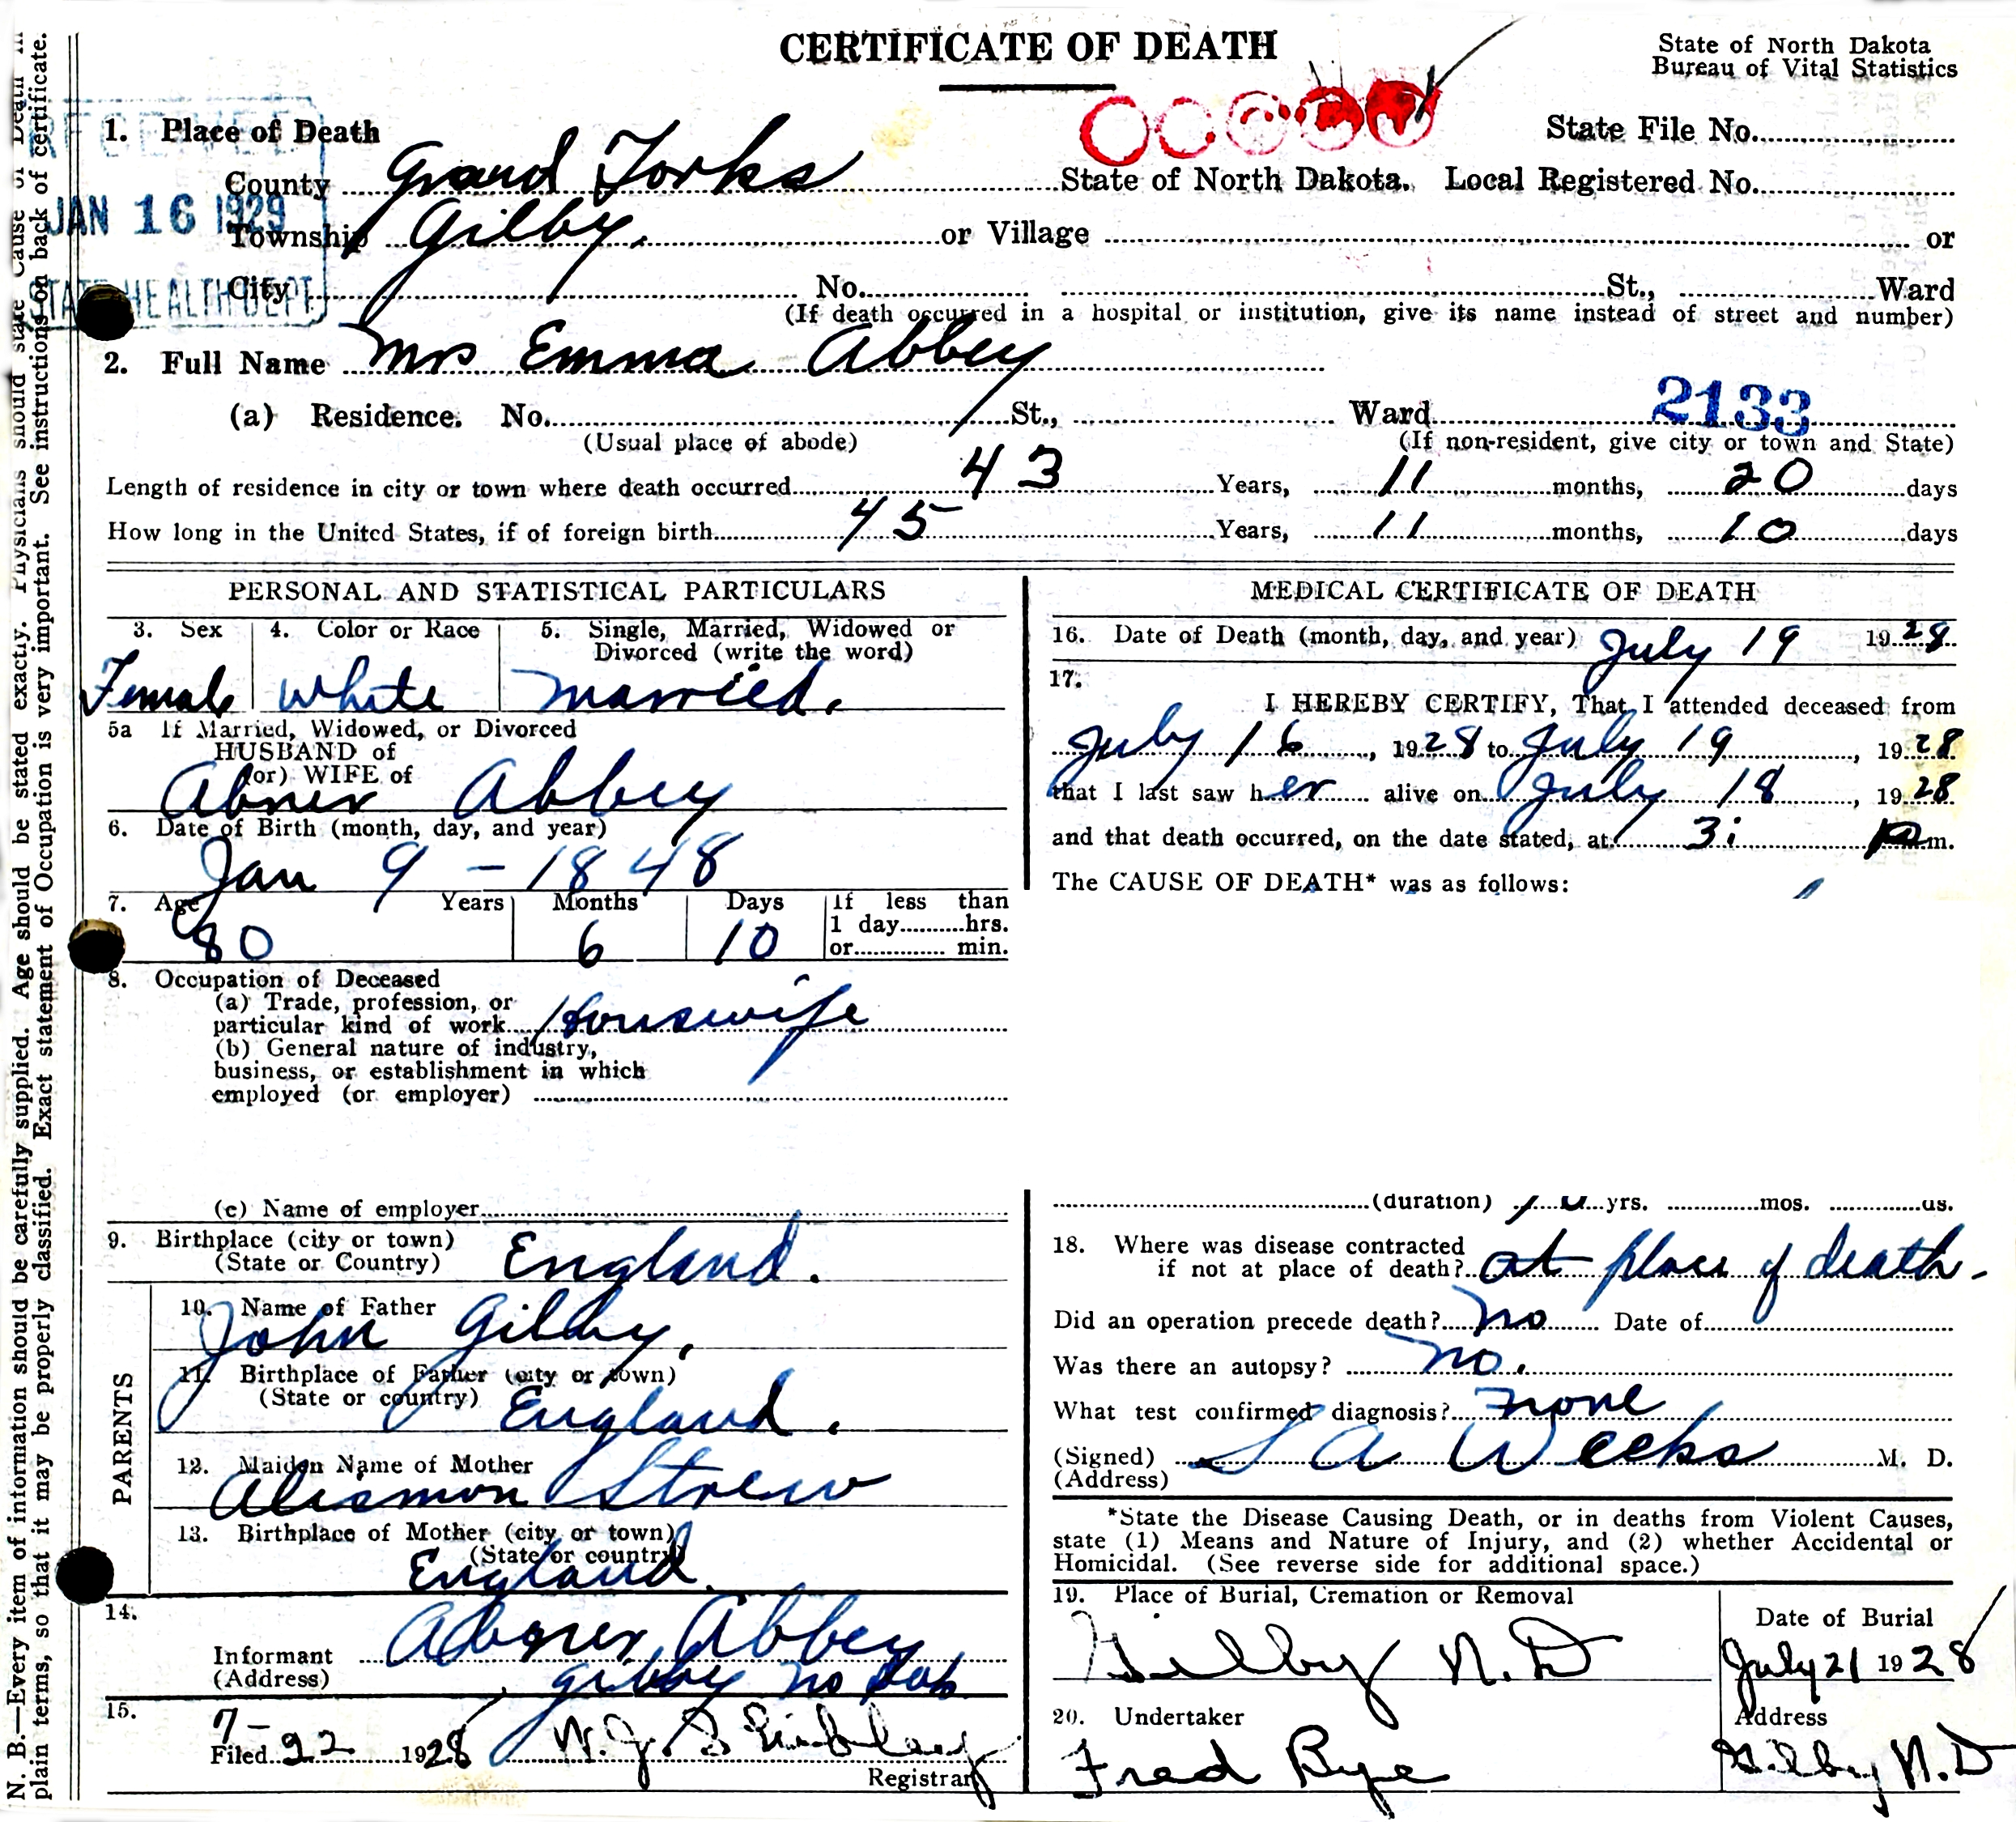 CERTIFICATE OF DEATH
State of North Dakota
Bureau of Vital Statistics
1. Place of Death
State File No.
County Grand Forks State of North Dakota. Local Registered No.
JAN 16 1929
Township Gilby. or Village or
STATE HEALTH DEPT
City No. St., Ward
(If death occurred in a hospital or institution, give its name instead of street and number)
2. Full Name Mrs Emma Abbey
2133
(a) Residence. No. St., Ward
(Usual place of abode) (If non-resident, give city or town and State)
Length of residence in city or town where death occurred 43 Years, 11 months, 20 days
How long in the United States, if of foreign birth 45 Years, 11 months, 10 days
PERSONAL AND STATISTICAL PARTICULARS
3. Sex 4. Color or Race 5. Single, Married, Widowed or
Divorced (write the word)
Female White Married.
5a If Married, Widowed, or Divorced
HUSBAND of
(or) WIFE of
Abner Abbey
6. Date of Birth (month, day, and year)
Jan 9 - 1848
7. Age Years Months Days If less than
1 day hrs.
80 6 10 or min.
8. Occupation of Deceased
(a) Trade, profession, or
particular kind of work Housewife
(b) General nature of industry,
business, or establishment in which
employed (or employer)
(c) Name of employer
9. Birthplace (city or town)
(State or Country) England.
PARENTS
10. Name of Father
John Gilby,
11. Birthplace of Father (city or town)
(State or country) England.
12. Maiden Name of Mother
Strew
13. Birthplace of Mother (city or town)
(State or country)
England
14.
Informant Abner Abbey
(Address) Gilby No Dak
15.
Filed 7-22 1928 W. J.
Registrar
MEDICAL CERTIFICATE OF DEATH
16. Date of Death (month, day, and year) July 19 1928
17.
I HEREBY CERTIFY, That I attended deceased from
July 16, 1928 to July 19, 1928
that I last saw her alive on July 18, 1928
and that death occurred, on the date stated, at 3: m.
The CAUSE OF DEATH* was as follows:
(duration) yrs. mos. ds.
18. Where was disease contracted
if not at place of death? at place of death -
Did an operation precede death? no Date of
Was there an autopsy? no.
What test confirmed diagnosis? none
(Signed) S A Weeks M. D.
(Address)
*State the Disease Causing Death, or in deaths from Violent Causes,
state (1) Means and Nature of Injury, and (2) whether Accidental or
Homicidal. (See reverse side for additional space.)
19. Place of Burial, Cremation or Removal
Gilby N.D
Date of Burial
July 21 1928
20. Undertaker
Fred Rye
Address
Gilby N.D
N. B.—Every item of information should be carefully supplied. Age should be stated exactly. Physicians should state Cause of Death in
plain terms, so that it may be properly classified. Exact statement of Occupation is very important. See instructions on back of certificate.